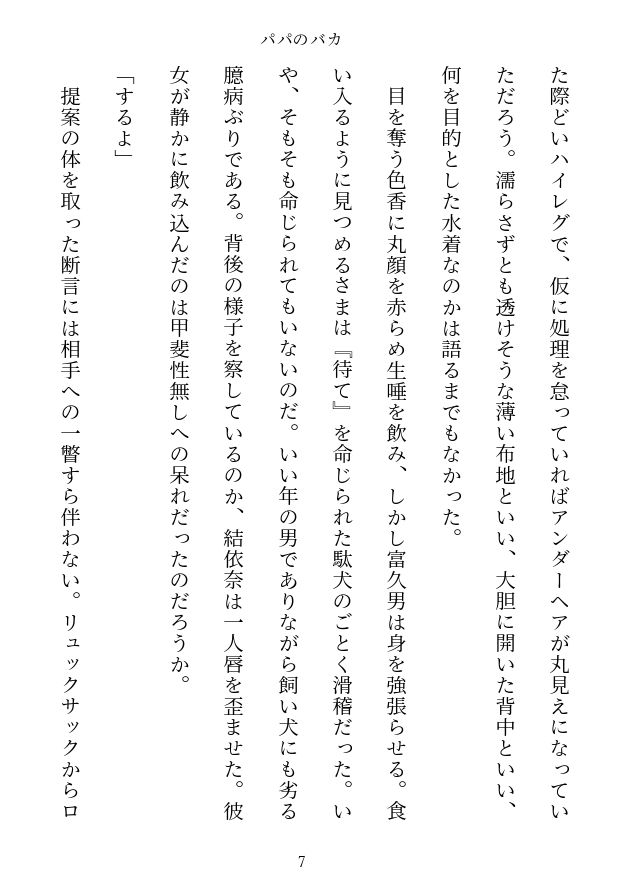 パパのバカ
た際どいハイレグで、仮に処理を怠っていればアンダーヘアが丸見えになってい
ただろう。濡らさずとも透けそうな薄い布地といい、大胆に開いた背中といい、
何を目的とした水着なのかは語るまでもなかった。
目を奪う色香に丸顔を赤らめ生唾を飲み、しかし富久男は身を強張らせる。食
い入るように見つめるさまは『待て』を命じられた駄犬のごとく滑稽だった。い
や、そもそも命じられてもいないのだ。いい年の男でありながら飼い犬にも劣る
臆病ぶりである。背後の様子を察しているのか、結依奈は一人唇を歪ませた。彼
女が静かに飲み込んだのは甲斐性無しへの呆れだったのだろうか。
「するよ」
提案の体を取った断言には相手への一瞥すら伴わない。リュックサックからロ
7